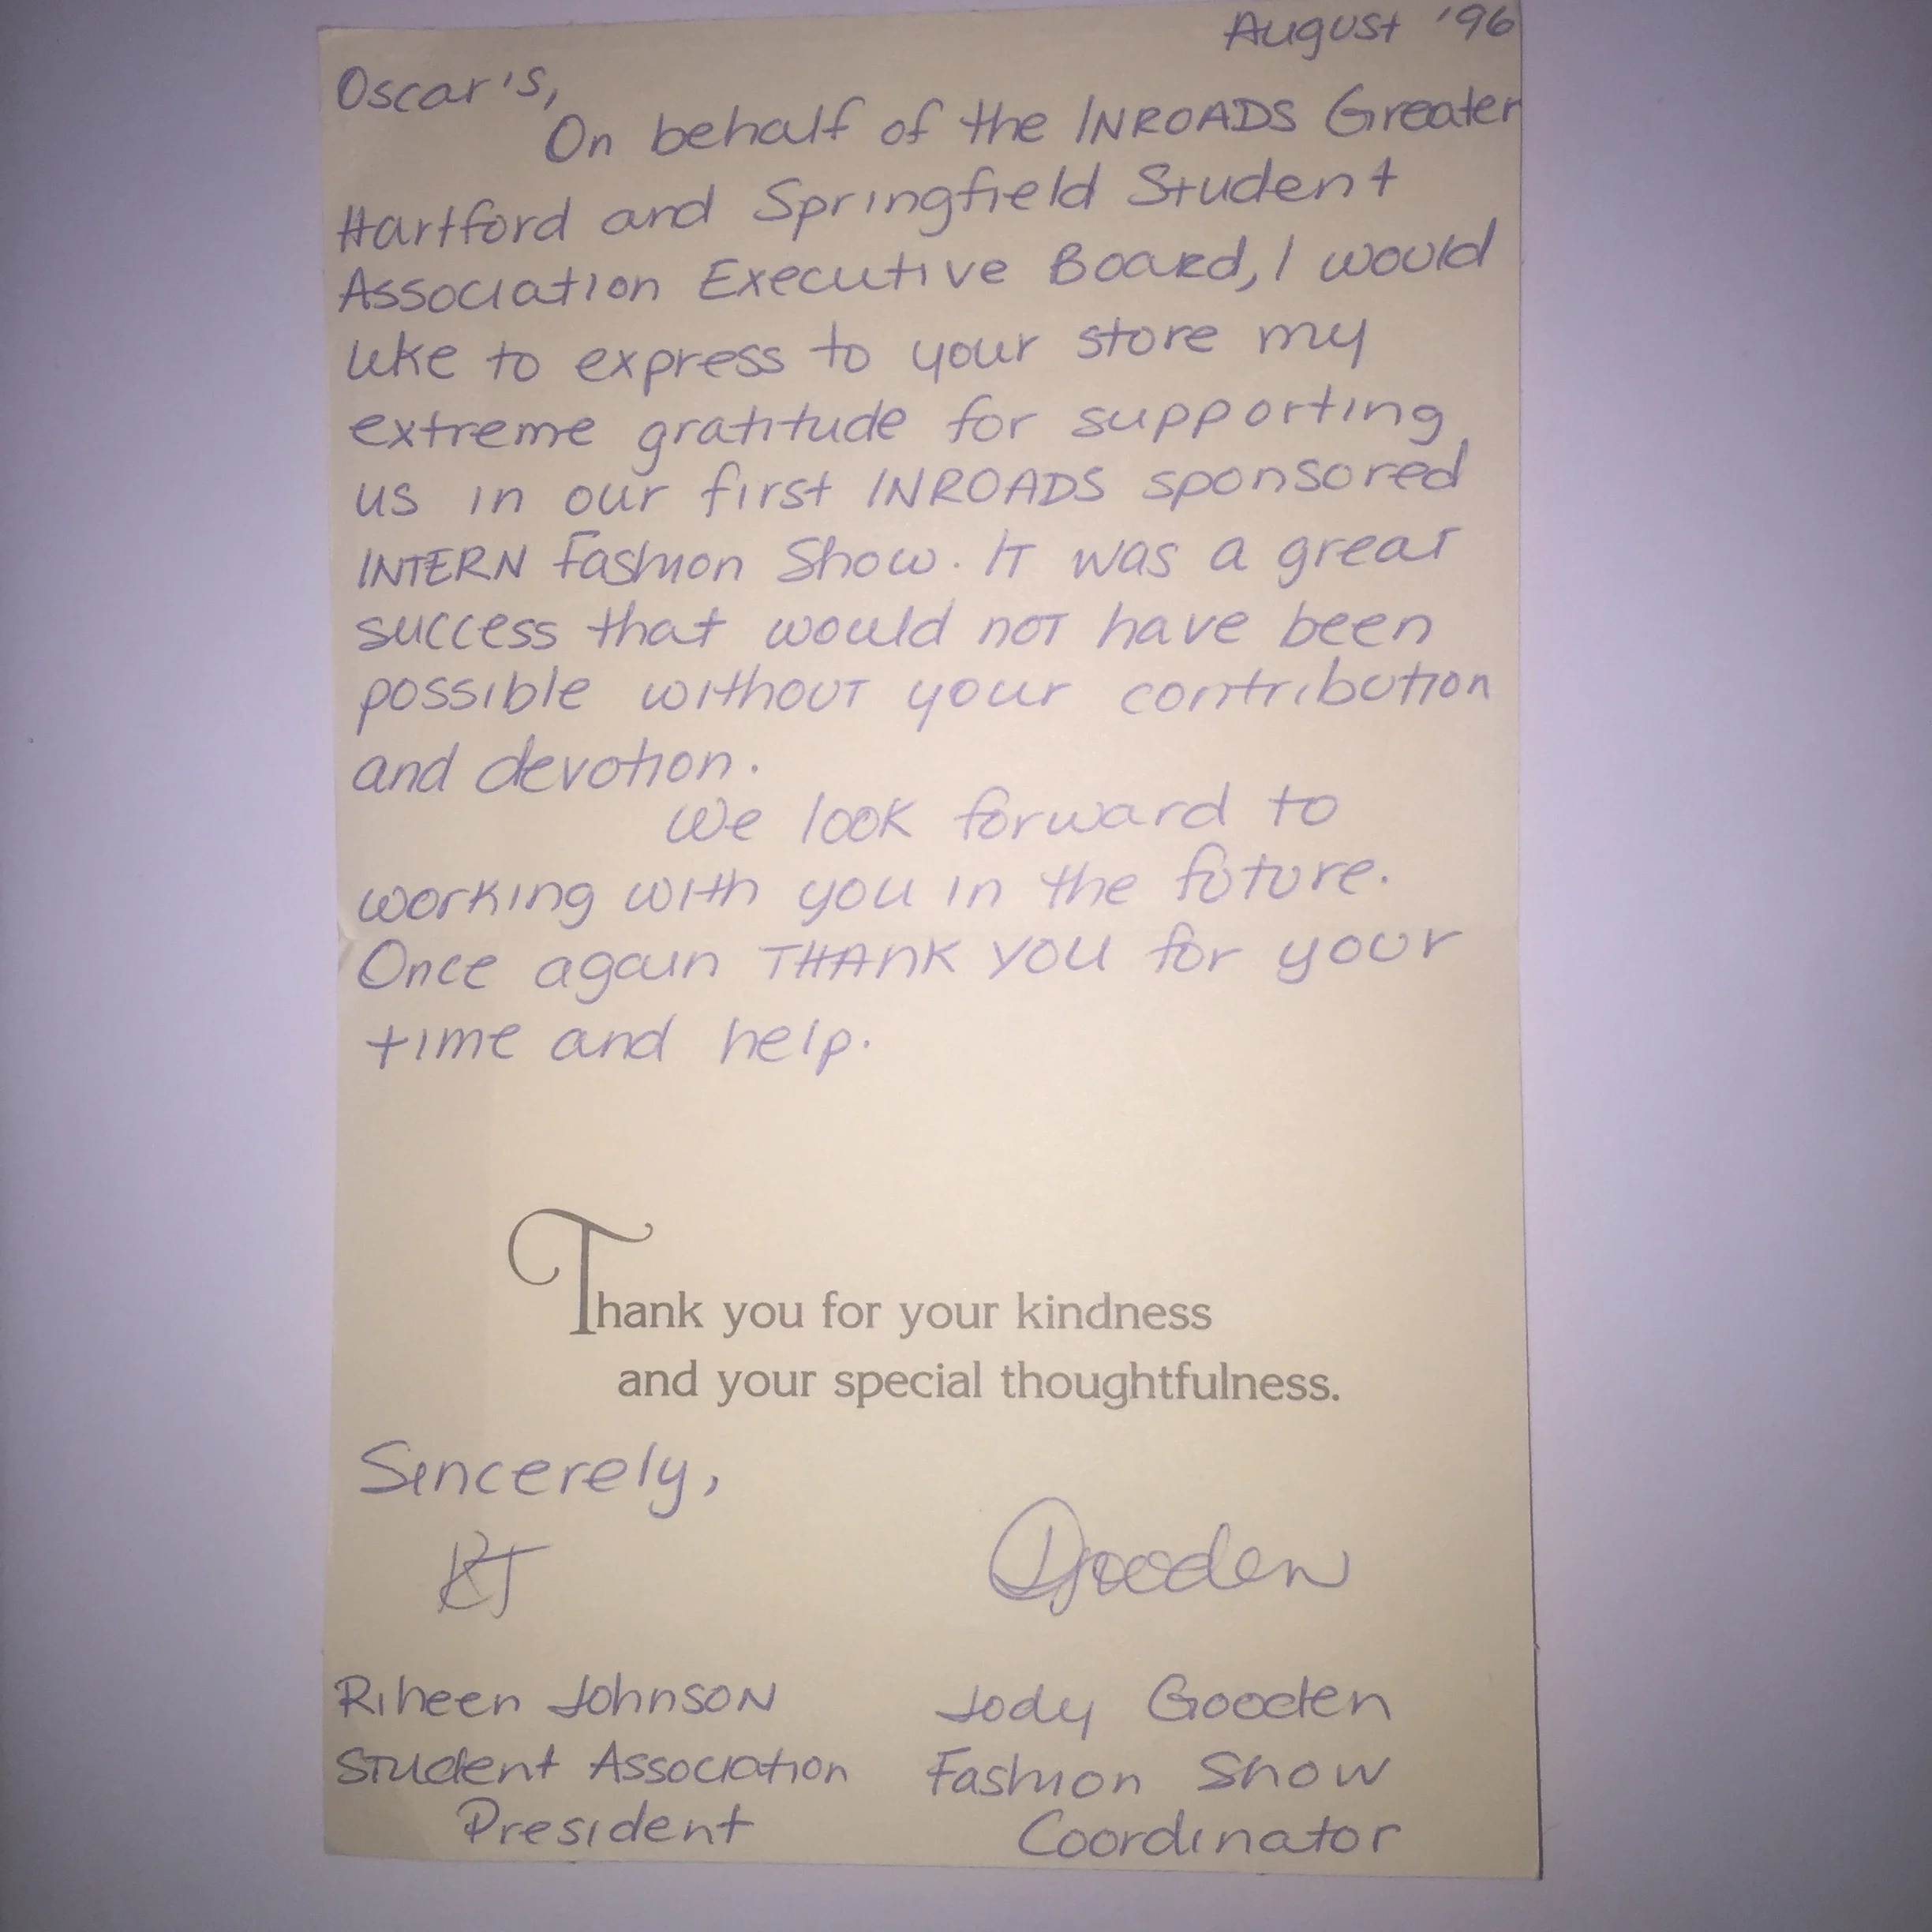 August '96
Oscar's,
On behalf of the INROADS Greater
Hartford and Springfield Student
Association Executive Board, I would
like to express to your store my
extreme gratitude for supporting
us in our first INROADS sponsored
INTERN Fashion Show. IT was a great
success that would not have been
possible without your contribution
and devotion.
We look forward to
working with you in the future.
Once again THANK YOU for your
time and help.
Thank you for your kindness
and your special thoughtfulness.
Sincerely,
RJ
JGooden
Riheen Johnson
Jody Gooden
Student Association
Fashion Show
President
Coordinator